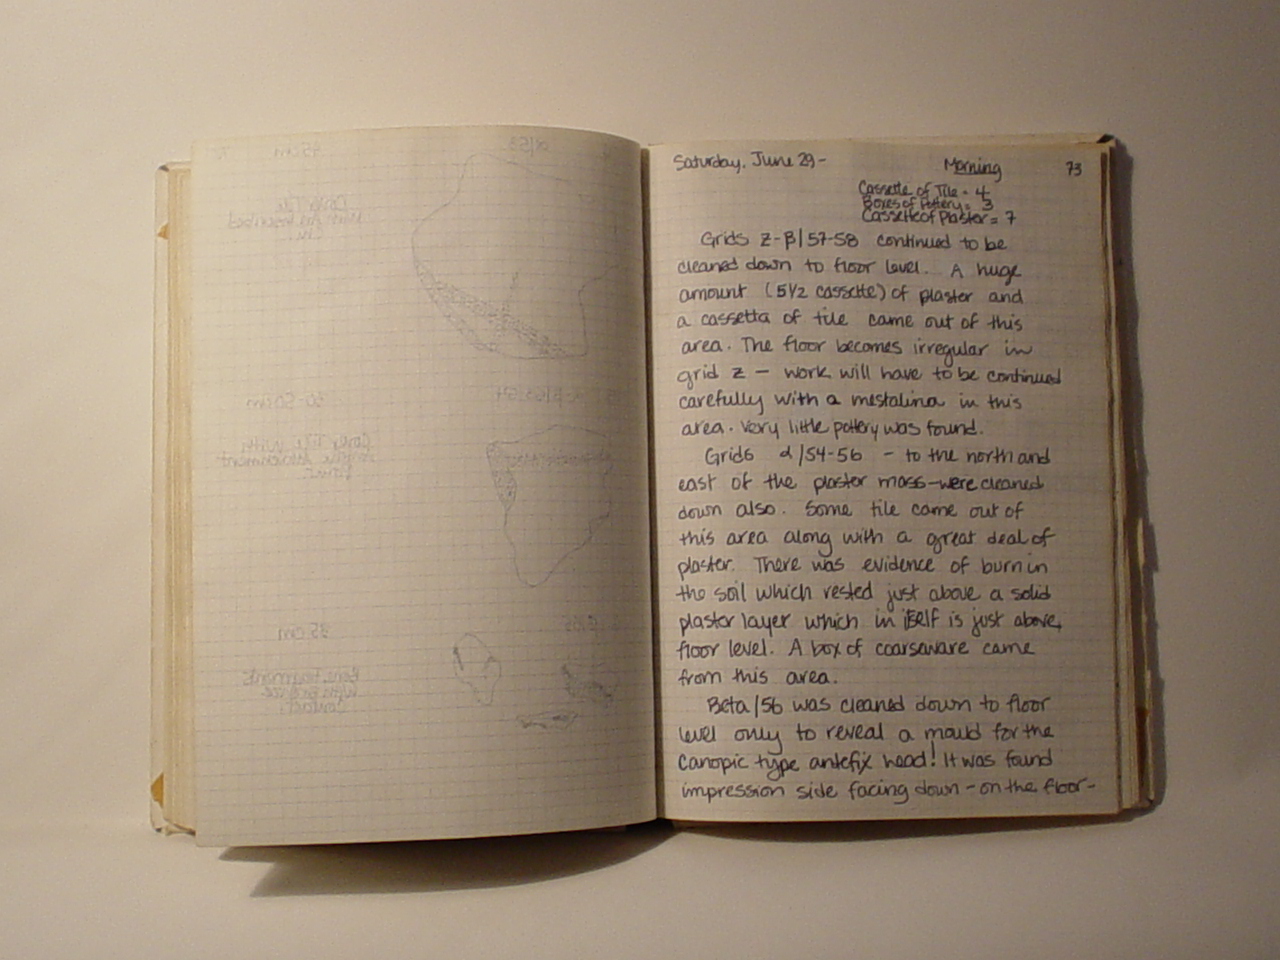 Saturday, June 29-
Morning
73
Cassette of Tile = 4
Boxes of Pottery = 3
Cassette of Plaster = 7
Grids Z-β/57-58 continued to be
cleaned down to floor level. A huge
amount (5 1/2 cassette) of plaster and
a cassetta of tile came out of this
area. The floor becomes irregular in
grid z — work will have to be continued
carefully with a mestalina in this
area. Very little pottery was found.
Grids α/54-56 - to the north and
east of the plaster mass-were cleaned
down also. Some tile came out of
this area along with a great deal of
plaster. There was evidence of burn in
the soil which rested just above a solid
plaster layer which in itself is just above
floor level. A box of coarseware came
from this area.
Beta/56 was cleaned down to floor
level only to reveal a mould for the
Canopic type antefix head! It was found
impression side facing down - on the floor-